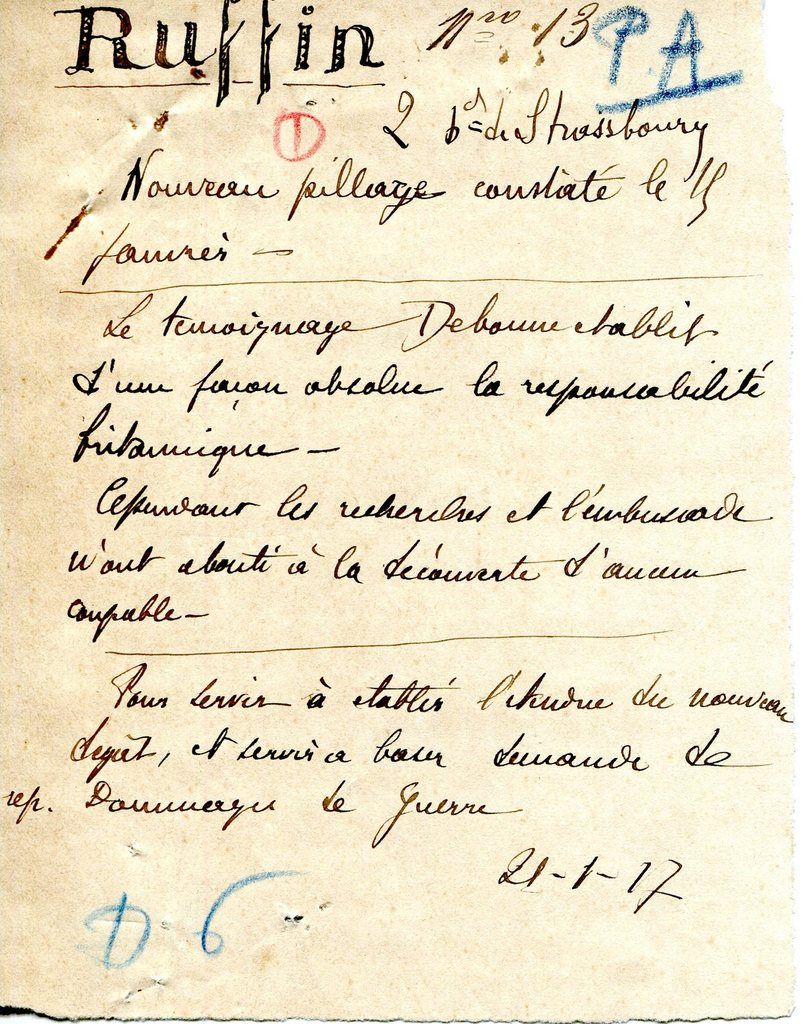 Ruffin nro 13 P.A
① 2 bd de Strassbourg
Nouveau pillage constaté le 15
janvier —
Le temoignage Debonne etablit
d'une façon absolue la responsabilité
britannique —
Cependant les recherches et l'embuscade
n'ont abouti à la découverte d'aucun
coupable —
Pour servir à etablir l'etendue du nouveau
degât, et servir a baser demande de
rep. Dommages de Guerre
21-1-17
D 6